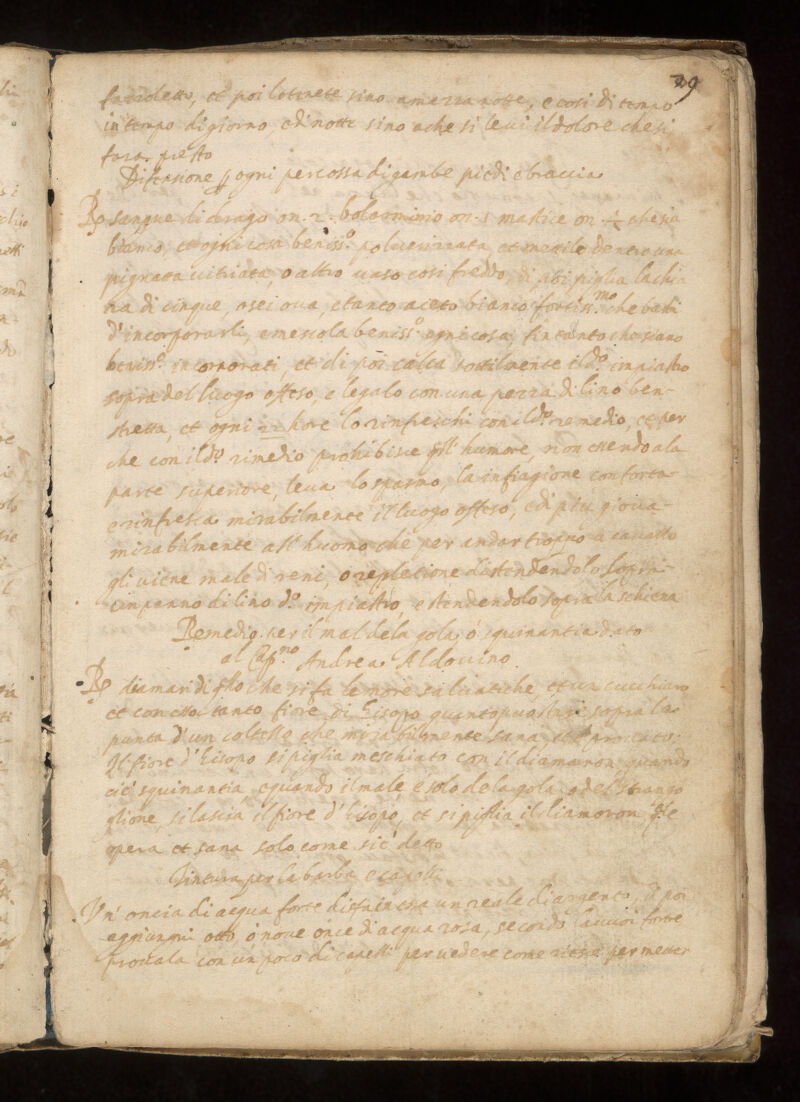 29
fazzoletto, et poi lo tenete sino a mezza notte, e cosi di tempo
in tempo di giorno, e di notte sino a che si levi il dolore che si
fara presto
Difensione p ogni percossa di gambe piedi e braccia
Rp sangue di drago on. 2. boloarminio on. 1 mastice on. ½ che sia
bianco, et ogni cosa beniss.o polverizzata, et mettile dentro una
pignata vitriata, o altro vaso cosi freddo, di poi piglia la chia
ra di cinque, o sei ova, e tanto aceto bianco fortiss.mo che basti
d'incorporarli, e mescola beniss.o ogni cosa, fin tanto che siano
beniss.o incorporati, et di poi calca sottilmente il d.o impiastro
sopra del luogo offeso, e legalo con una pezza di lino ben
stretta, et ogni 12 hore lo rinfreschi con il d.o remedio, et per
che con il d.o rimedio prohibisce gll humore, non essendo a la
parte superiore, leva lo spasmo, la infiagione conforta
e rinfresca mirabilmente il luogo offeso, e di piu giova
mirabilmente all' huomo che per andar troppo a cavallo
gli viene male di reni, o repletione distendendolo sopra
un panno di lino d.o impiastro, e stendendolo sopra la schiena
Remedio per il mal de la gola, ó squinantia dato
al Cap.no Andrea Aldovino
Rp diamari di qllo che si fa le more salvatiche, et un cucchiaro
et con esso tanto fiore di Eisopo quanto puo stare sopra la
punta d'un coltello che mirabilmente sana, et è provato.
Il fiore d'Eisopo si piglia meschiato con il diamaron quando
ci è squinantia, e quando il male, è solo de la gola, o del strango
glione, si lascia il fiore d'Eisopo, et si piglia il diamoron, qle
opera et sana solo come si è detto
Tintura per la barba e capelli
Un' oncia di acqua forte disfa in essa un reale di argento, di poi
aggiungni otto, ó nove once di acqua rosa, secondo la vuoi forte
provala con un poco di capelli per vedere come riesce per metter